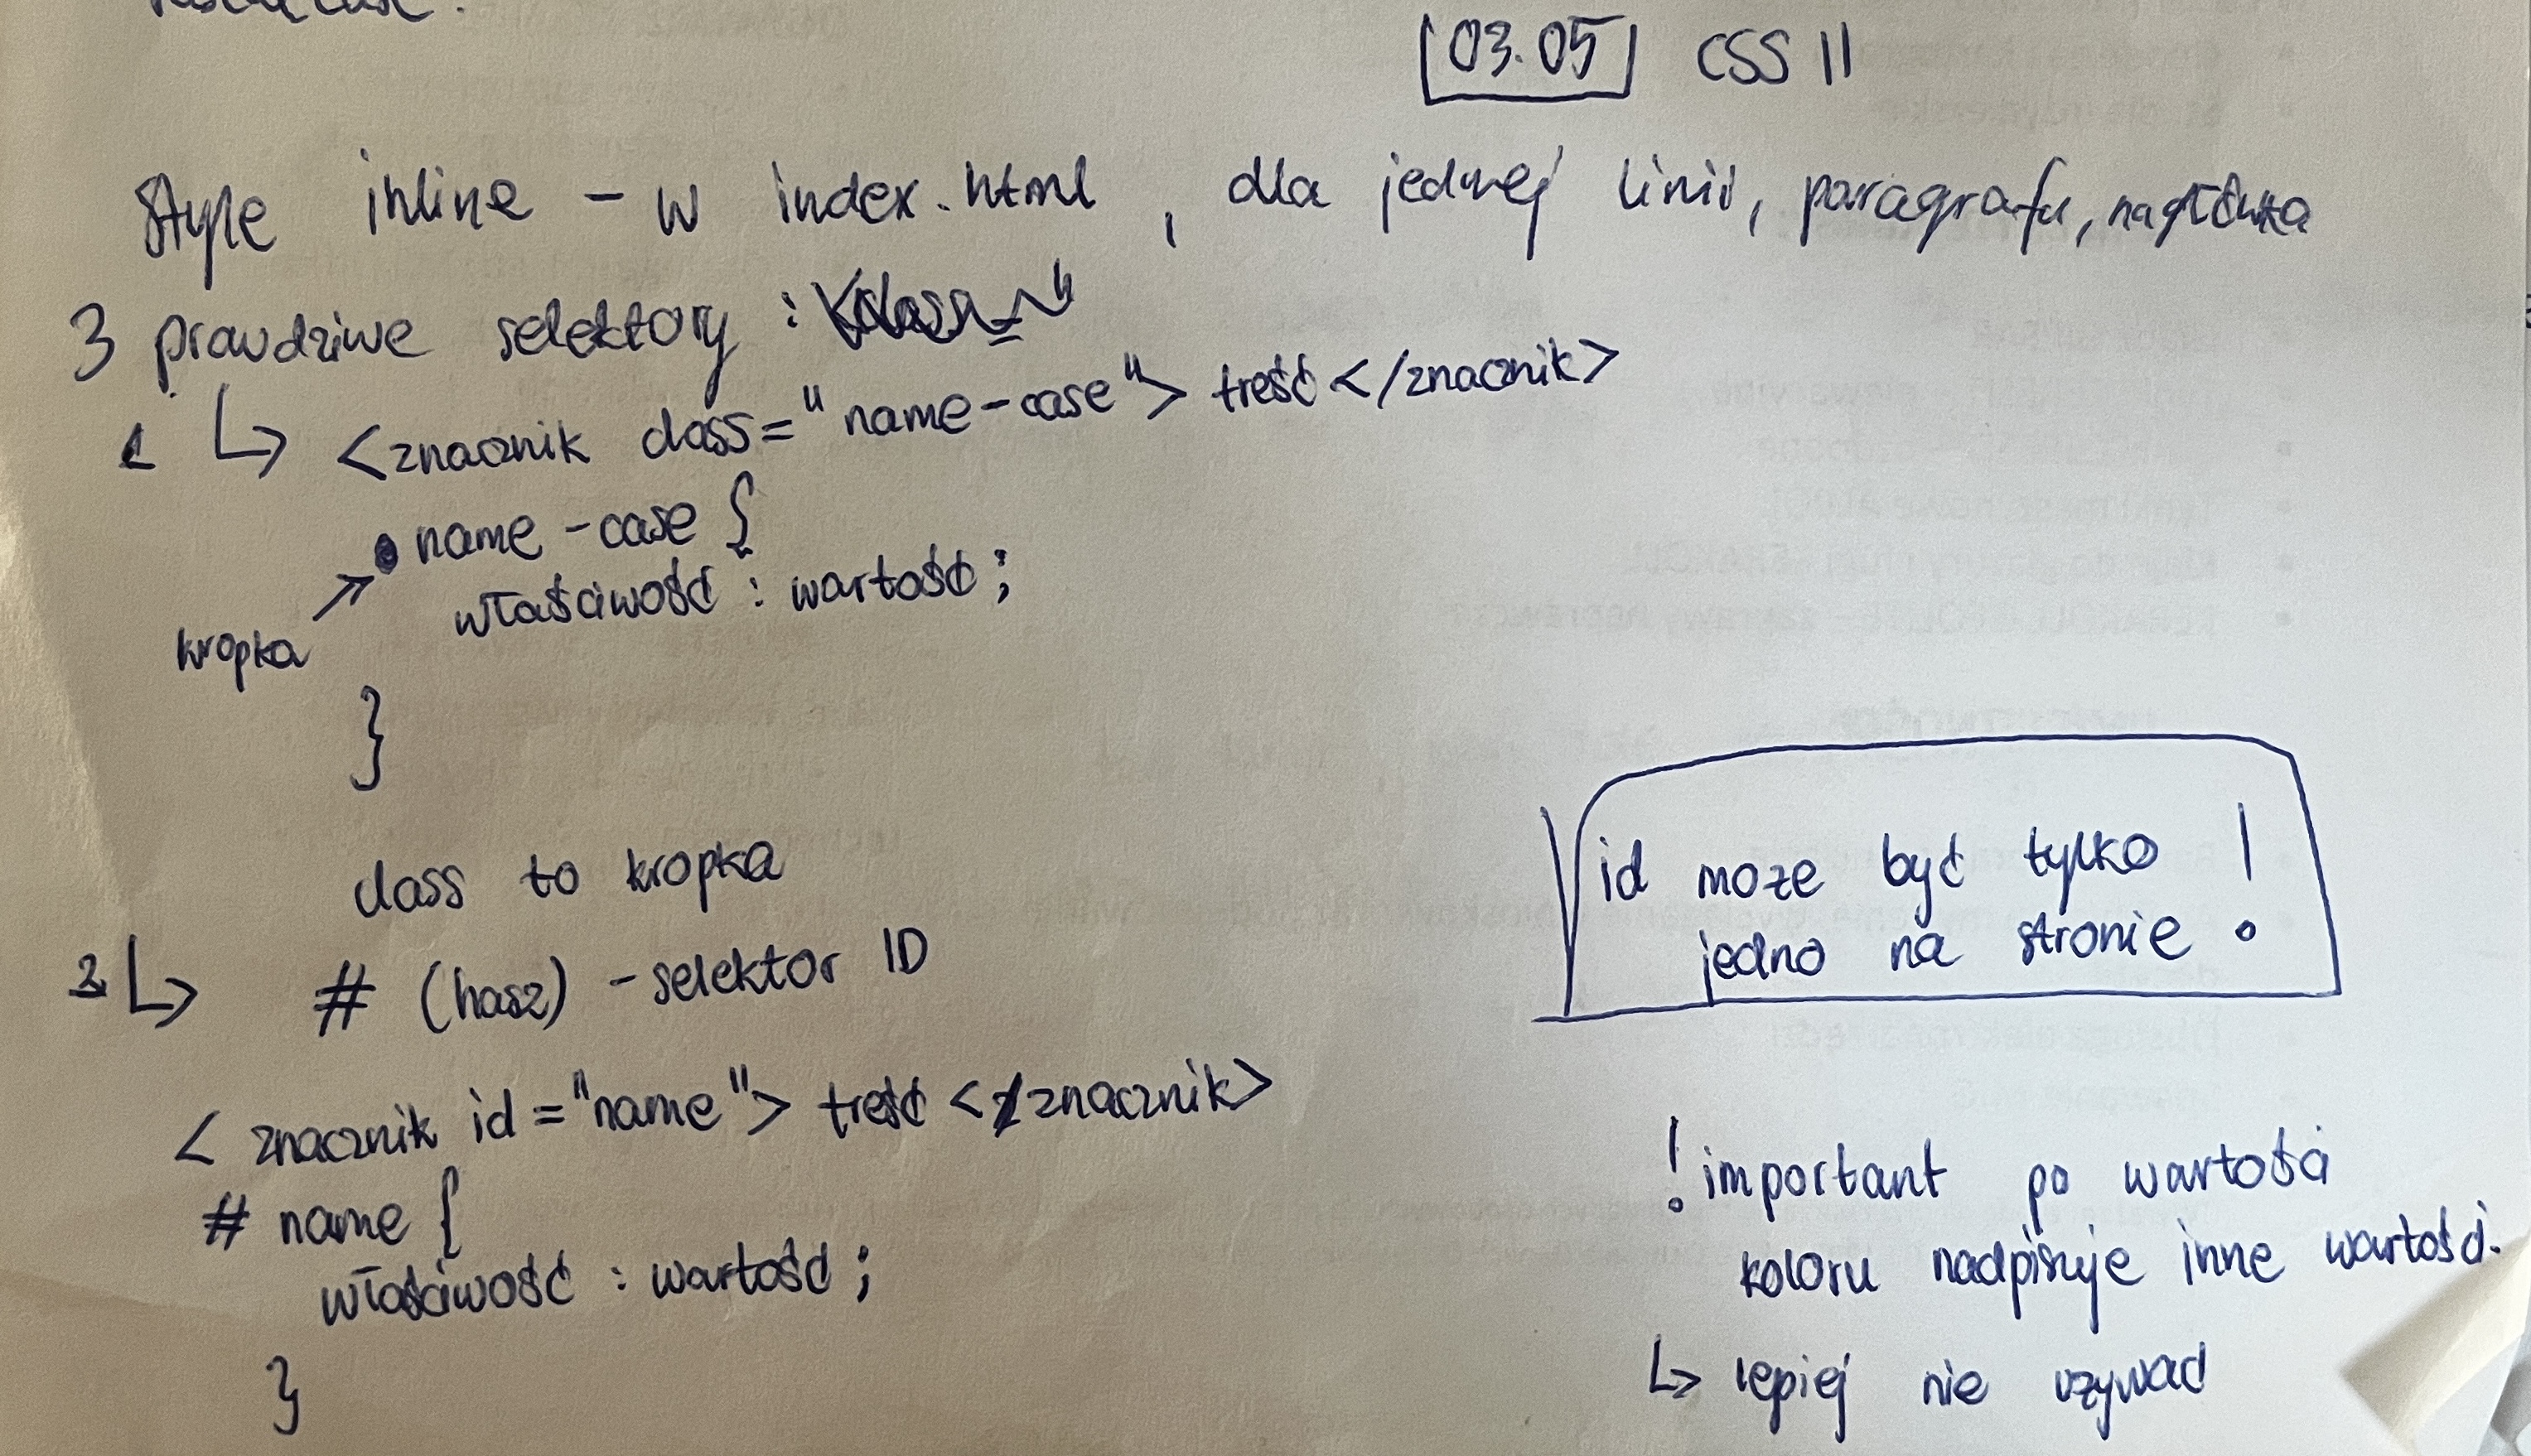 [03.05] CSS II
style inline - w index.html, dla jednej linii, paragrafu, nagłówka
3 prawdziwe selektory :
1 ↳ <znacznik class="name-case"> treść </znacznik>
.name-case {
właściwość : wartość ;
kropka
}
class to kropka
2 ↳ # (hasz) - selektor ID
id może być tylko
jedno na stronie !
<znacznik id="name"> treść </znacznik>
# name {
właściwość : wartość ;
}
!important po wartości
koloru nadpisuje inne wartości.
↳ lepiej nie używać